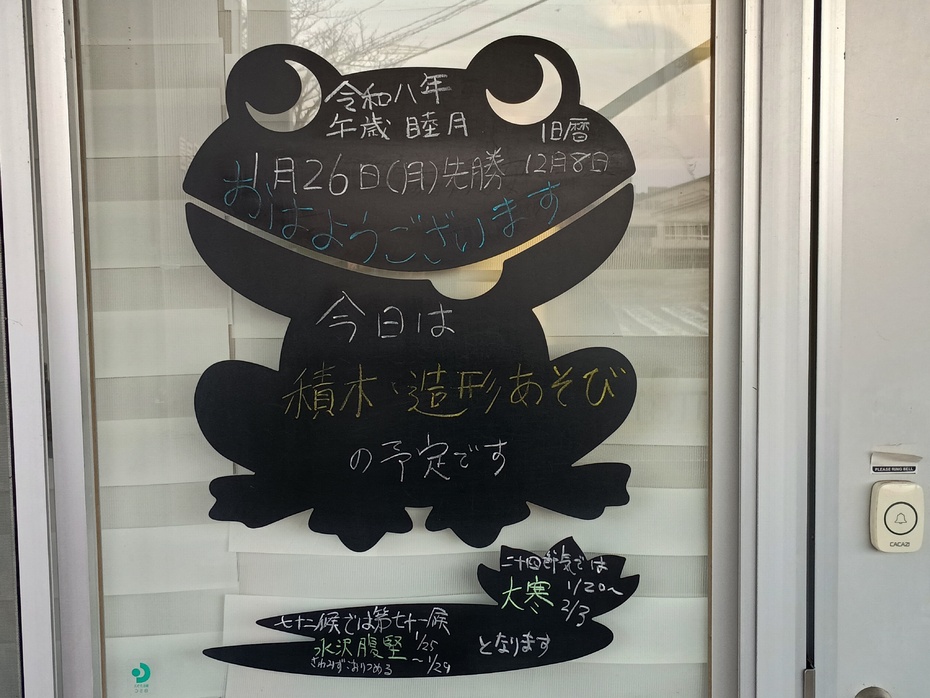 令和八年
午歳 睦月
旧暦
12月8日
1月26日(月)先勝
おはようございます
今日は
積木・造形あそび
の予定です
二十四節気では
大寒 1/20~
2/3
七十二候では第七十一候
水沢腹堅 1/25
~1/29
さわみずこおりつめる
となります
PLEASE RING BELL
CACAZI